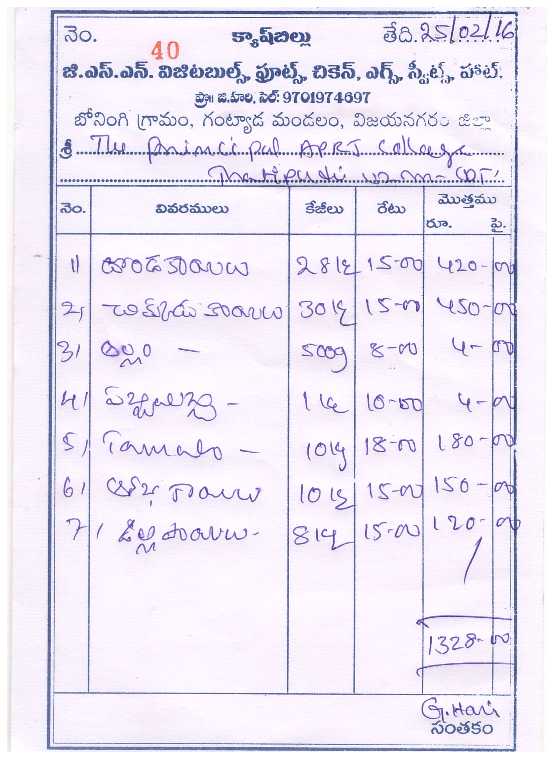 నెం. 40 క్యాష్‌బిల్లు తేది. 25/02/16
జి.ఎస్.ఎన్. విజిటబుల్స్, ఫ్రూట్స్, చికెన్, ఎగ్స్, స్వీట్స్, హాట్.
ప్రొః జి.హరి, సెల్: 9701974697
బోనింగి గ్రామం, గంట్యాడ మండలం, విజయనగరం జిల్లా
శ్రీ The Principal A.P.R.J. College
నెం. వివరములు కేజీలు రేటు మొత్తము
రూ. పై.
1/ దొండకాయలు 28 kg 15-00 420-00
2/ చిక్కుడు కాయలు 30 kg 15-00 450-00
3/ అల్లం — 500g 8-00 4-00
4/ 1 kg 10-00 4-00
5/ Tamato — 10 kg 18-00 180-00
6/ కాయలు 10 kg 15-00 150-00
7/ 8 kg 15-00 120-00
1328-00
G. Hari
సంతకం